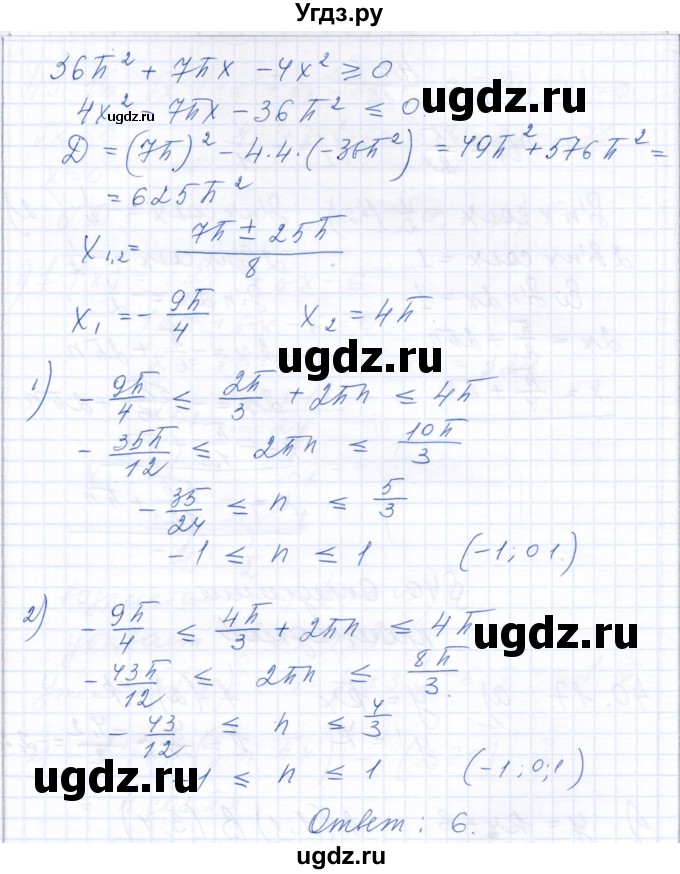 Угдз.ру
36π² + 7πx - 4x² ≥ 0
4x² - 7πx - 36π² ≤ 0
ugdz.ru
ugdz.ru
D = (7π)² - 4·4·(-36π²) = 49π² + 576π² =
= 625π²
x₁,₂ = (7π ± 25π)/8
ugdz.ru
x₁ = - 9π/4    x₂ = 4π
ugdz.ru
1) - 9π/4 ≤ 2π/3 + 2πn ≤ 4π
- 35π/12 ≤ 2πn ≤ 10π/3
ugdz.ru
- 35/24 ≤ n ≤ 5/3
- 1 ≤ n ≤ 1    (-1; 0 1.)
2) - 9π/4 ≤ 4π/3 + 2πn ≤ 4π
ugdz.ru
- 43π/12 ≤ 2πn ≤ 8π/3.
- 43/12 ≤ n ≤ 4/3
ugdz.ru
-1 ≤ n ≤ 1    (-1; 0; 1)
Ответ: 6.
ugdz.ru